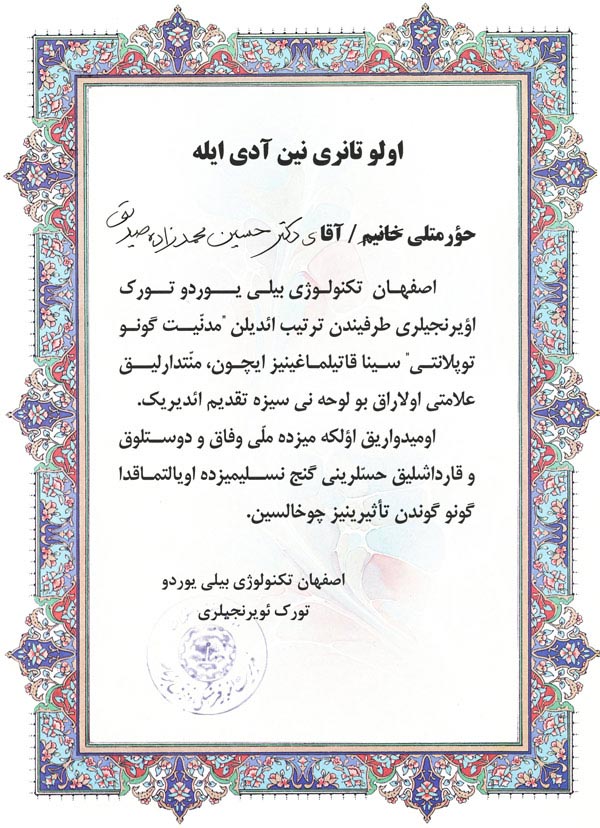 اولو تانری نین آدی ایله
حؤرمتلی خانیم / آقای دکتر حسین محمدزاده صدیق
اصفهان تکنولوژی بیلی یوردو تورک
اؤیرنجیلری طرفیندن ترتیب ائدیلن "مدنّیت گونو
توپلانتی" سینا قاتیلماغینیز ایچون، منّتدارلیق
علامتی اولاراق بو لوحه نی سیزه تقدیم ائدیریک.
اومیدواریق اؤلکه میزده ملّی وفاق و دوستلوق
و قارداشلیق حسّلرینی گنج نسلیمیزده اویالتماقدا
گونو گوندن تأثیرینیز چوخالسین.
اصفهان تکنولوژی بیلی یوردو
تورک ئویرنجیلری